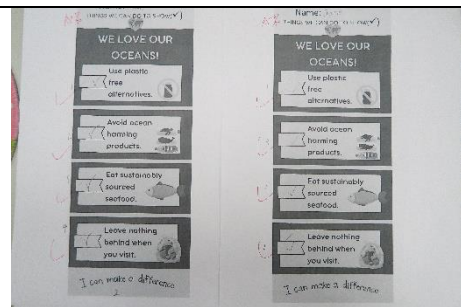 THINGS WE CAN DO TO SHOW(✓)
WE LOVE OUR
OCEANS!
Use plastic
free
alternatives.
Avoid ocean
harming
products.
Eat sustainably
sourced
seafood.
Leave nothing
behind when
you visit.
I can make a difference
Name:
THINGS WE CAN DO TO SHOW(✓)
WE LOVE OUR
OCEANS!
Use plastic
free
alternatives.
Avoid ocean
harming
products.
Eat sustainably
sourced
seafood.
Leave nothing
behind when
you visit.
I can make a difference